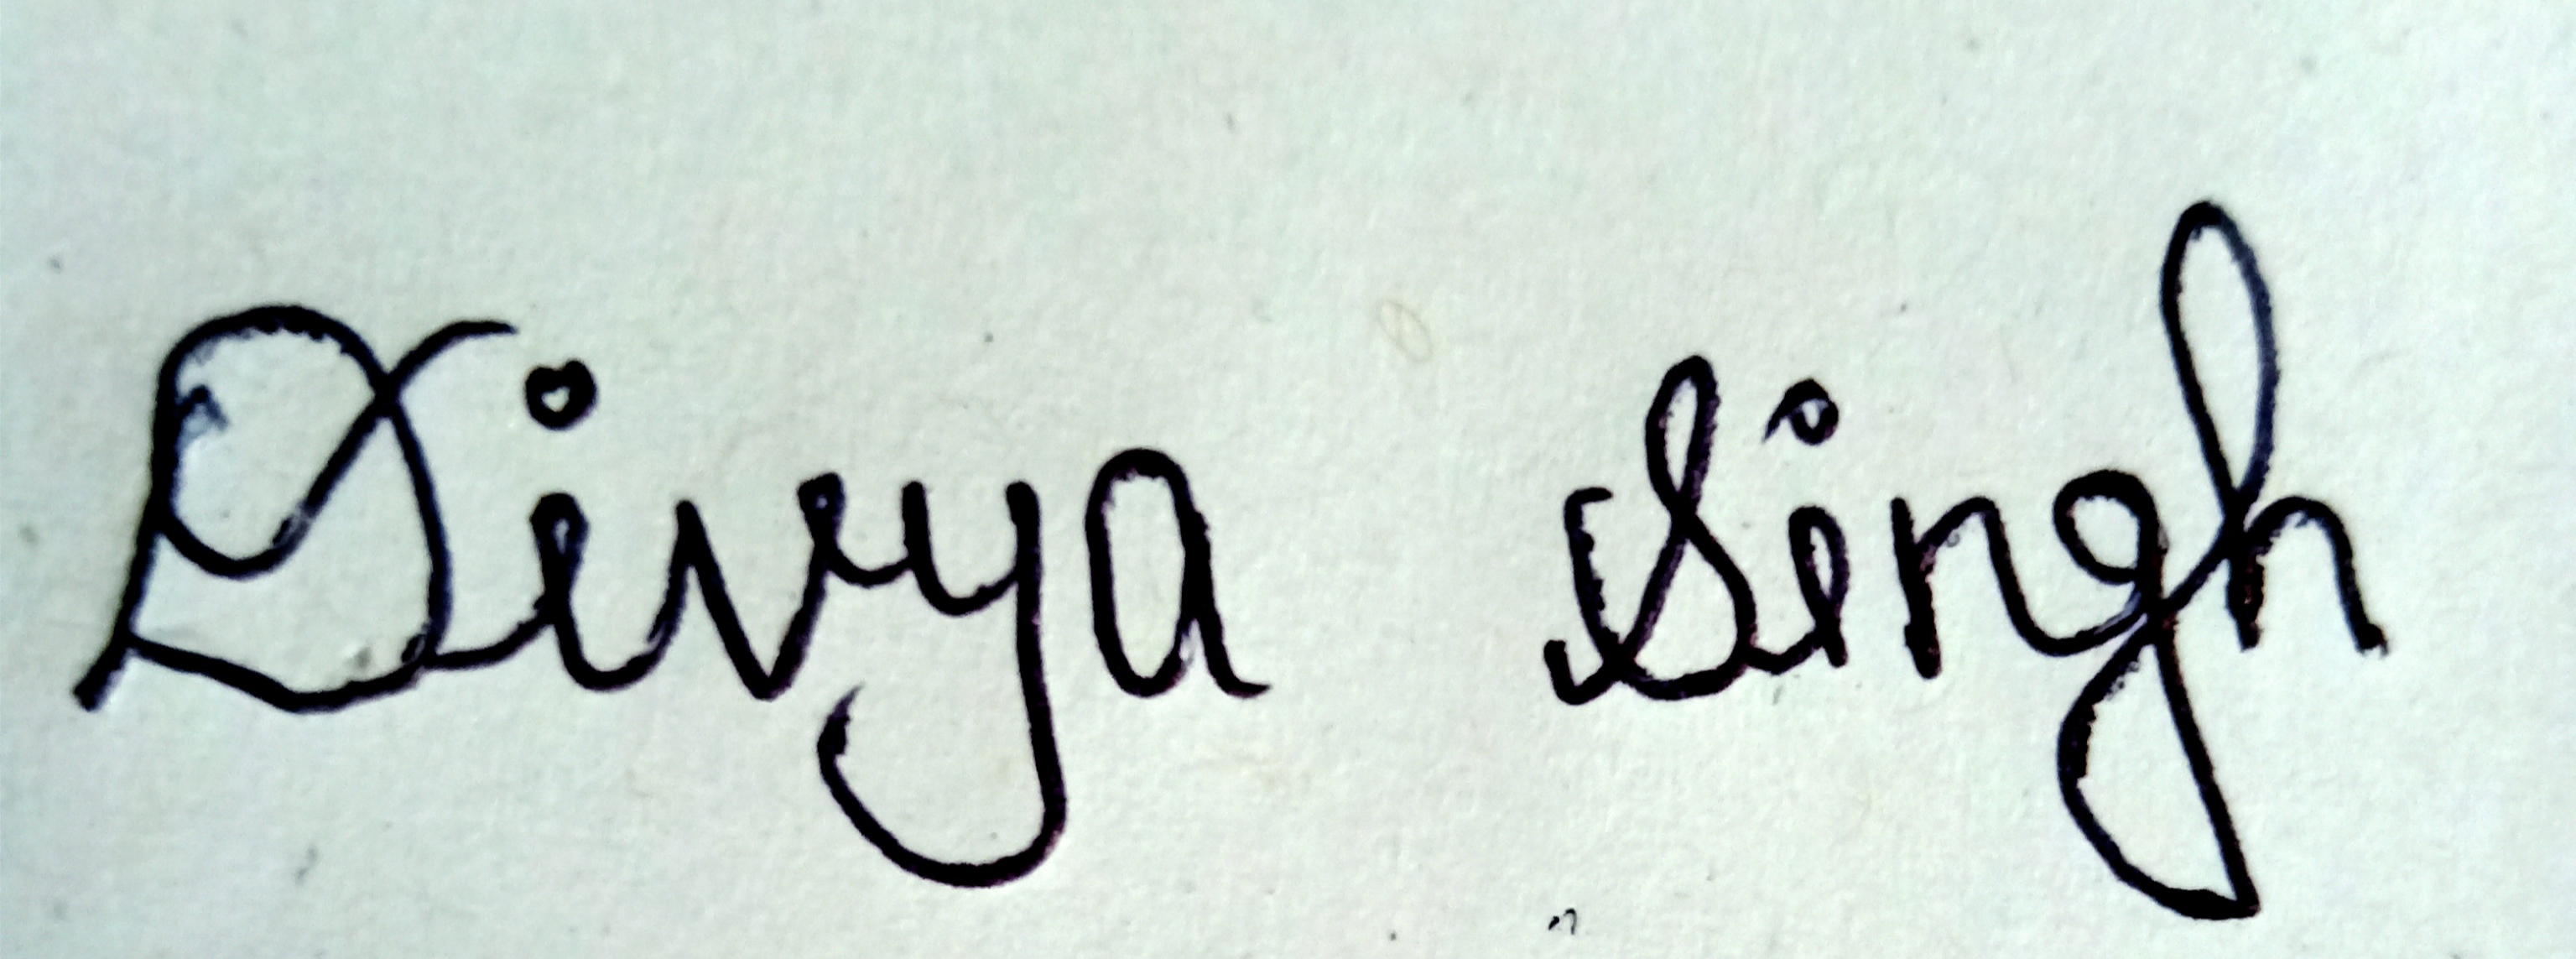 Divya Singh